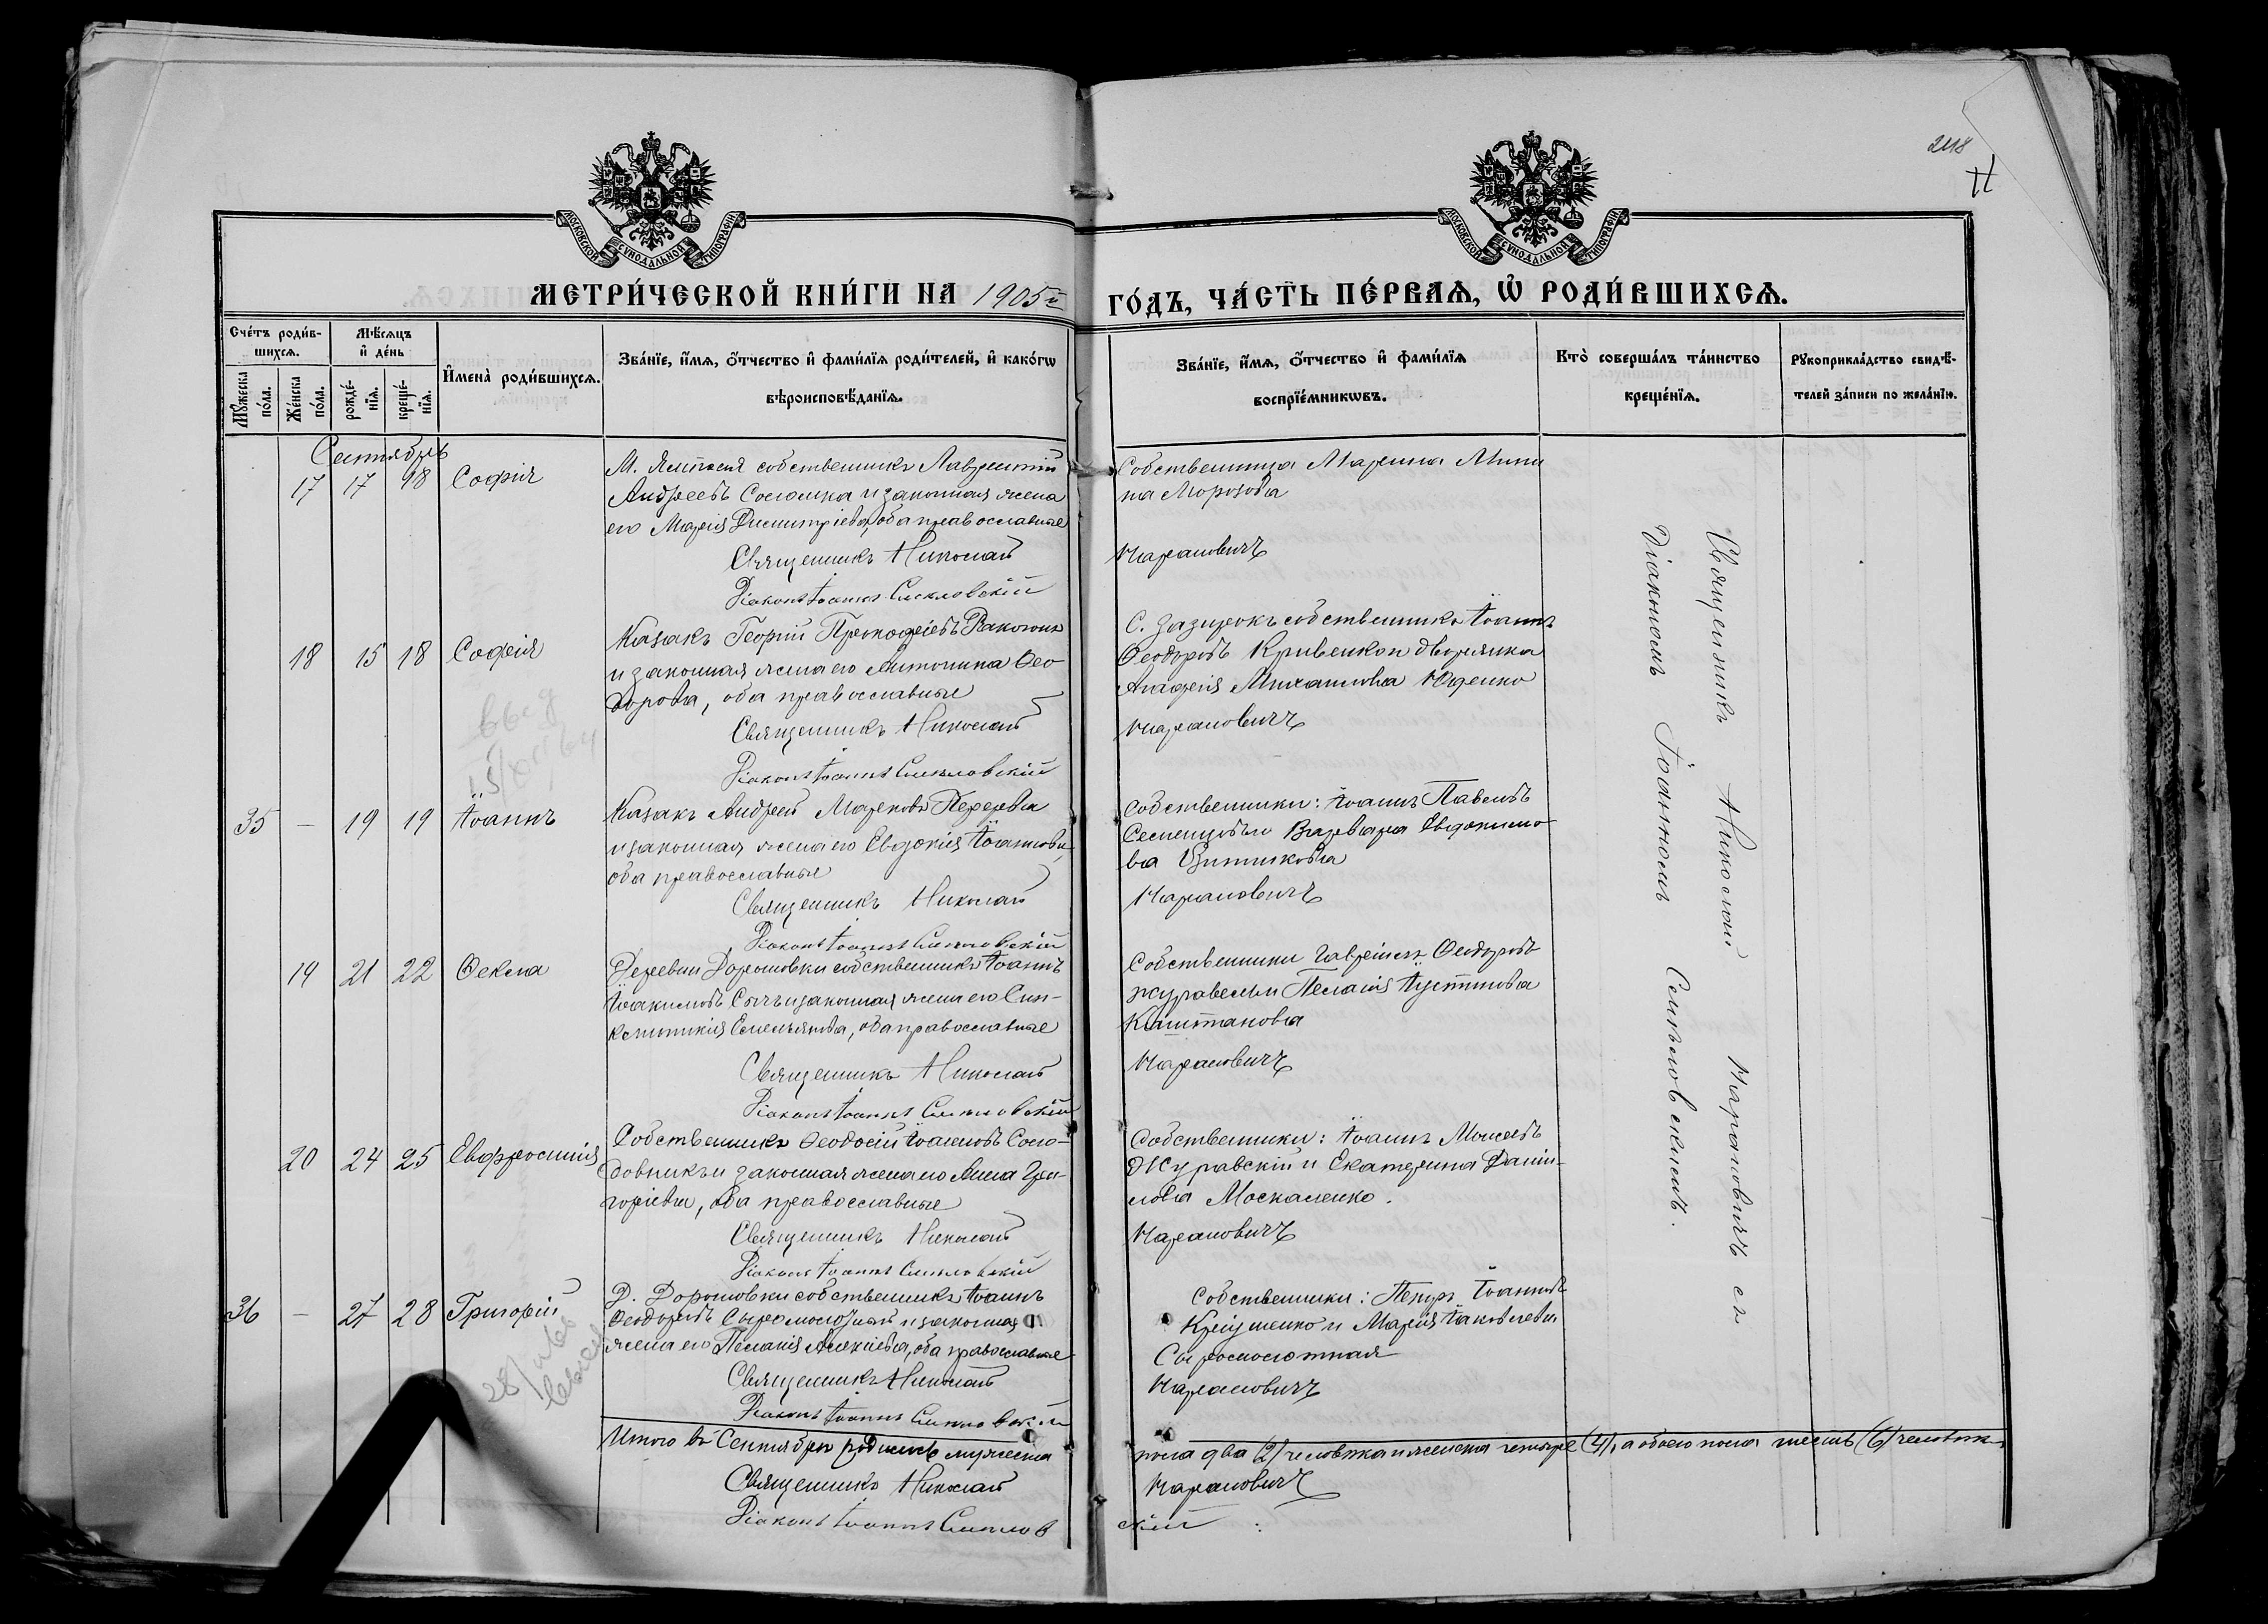 248
11
МОСКОВСКОЙ СѴНОДАЛЬНОЙ ТИПОГРАФІИ
МОСКОВСКОЙ СѴНОДАЛЬНОЙ ТИПОГРАФІИ
МЕТРИ́ЧЕСКОЙ КНИ́ГИ НА 1905й
ГО́ДЪ, ЧА́СТЬ ПЕ́РВАѦ, Ѡ҆ РОДИ́ВШИХСѦ.
Сче́тъ роди́в-
шихсѧ.
Мꙋ́жеска
по́ла.
Же́нска
по́ла.
Мѣ́сѧцъ
и҆ де́нь
рожде́-
нїѧ.
креще́-
нїѧ.
И҆мена̀ роди́вшихсѧ.
Зва́нїе, и҆́мѧ, ѻ҆́тчество и҆ фами́лїѧ роди́телей, и҆ како́гѡ
вѣроисповѣ́данїѧ.
Зва́нїе, и҆́мѧ, ѻ҆́тчество и҆ фами́лїѧ
воспрїе́мникѡвъ.
Кто̀ соверша́лъ та́инство
креще́нїѧ.
Рꙋкоприкла́дство свидѣ́-
телей за́писи по жела́нїю.
Сентябрь
17 17 18 Софія
М. собственникъ Лаврентій
Андреевъ и законная жена
его Марія Димитріева, оба православные
Священникъ Николай
Діаконъ Іоаннъ Симловскій
Собственница Марина Мини
на Морозова
Марановичъ
18 15 18 Софія
Казакъ Георгій Прокофіевъ
и законная жена его Антонина Ѳео-
дорова, оба православные
Священникъ Николай
Діаконъ Іоаннъ Симловскій
С. собственникъ Іоаннъ
Ѳеодоровъ Кривенко и дворянка
Агафія Михайлова Юденко
Марановичъ
35 – 19 19 Іоаннъ
Казакъ Андрей Марковъ Перерва
и законная жена его Евдокія Іоаннова,
оба православные
Священникъ Николай
Діаконъ Іоаннъ Симловскій
Собственники: Іоаннъ Павловъ
и Варвара Евдокимо-
ва
Марановичъ
19 21 22 Ѳекла
Деревни Дорошовки собственникъ Іоаннъ
Іоакимовъ Сычъ и законная жена его Син-
клитикія Емельянова, оба православные
Священникъ Николай
Діаконъ Іоаннъ Симловскій
Собственники Гавріилъ Ѳеодоровъ
Журавель и Пелагія Іустинова
Каштанова
Марановичъ
20 24 25 Евфросинія
Собственникъ Ѳеодосій Соло-
довникъ и законная жена его Анна Гри-
горіева, оба православные
Священникъ Николай
Діаконъ Іоаннъ Симловскій
Собственники: Іоаннъ Моисеевъ
Журавскій и Екатерина Даніи-
лова Москаленко.
Марановичъ
36 – 27 28 Григорій
Д. Дорошовки собственникъ Іоаннъ
Ѳеодоровъ Сыромолотный и законная
жена его Пелагія Алексіева, оба православные
Священникъ Николай
Діаконъ Іоаннъ Симловскій
Собственники: Петръ Іоанновъ
и Марія Іаковлева
Сыромолотная
Марановичъ
Священникъ Николай Марановичъ съ
Діакономъ Іоанномъ Симловскимъ.
Итого въ Сентябрѣ родилось мужеска
пола два (2) человѣка и женска четыре (4), а обоего пола шесть (6) человѣкъ
Священникъ Николай
Марановичъ
Діаконъ Іоаннъ Симлов
скій